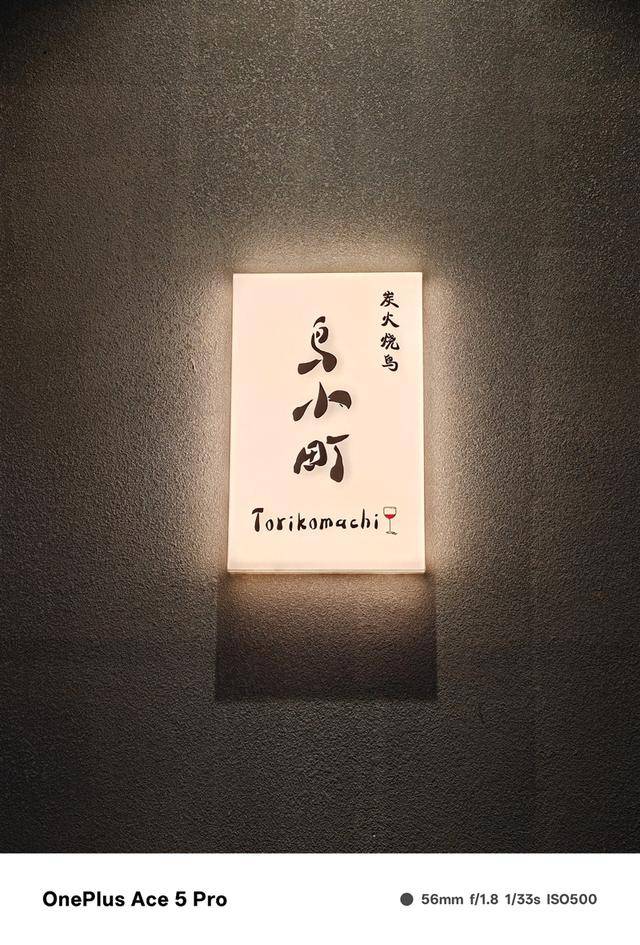 炭火焼鸟
鸟小町
Torikomachi
OnePlus Ace 5 Pro
56mm f/1.8 1/33s ISO500